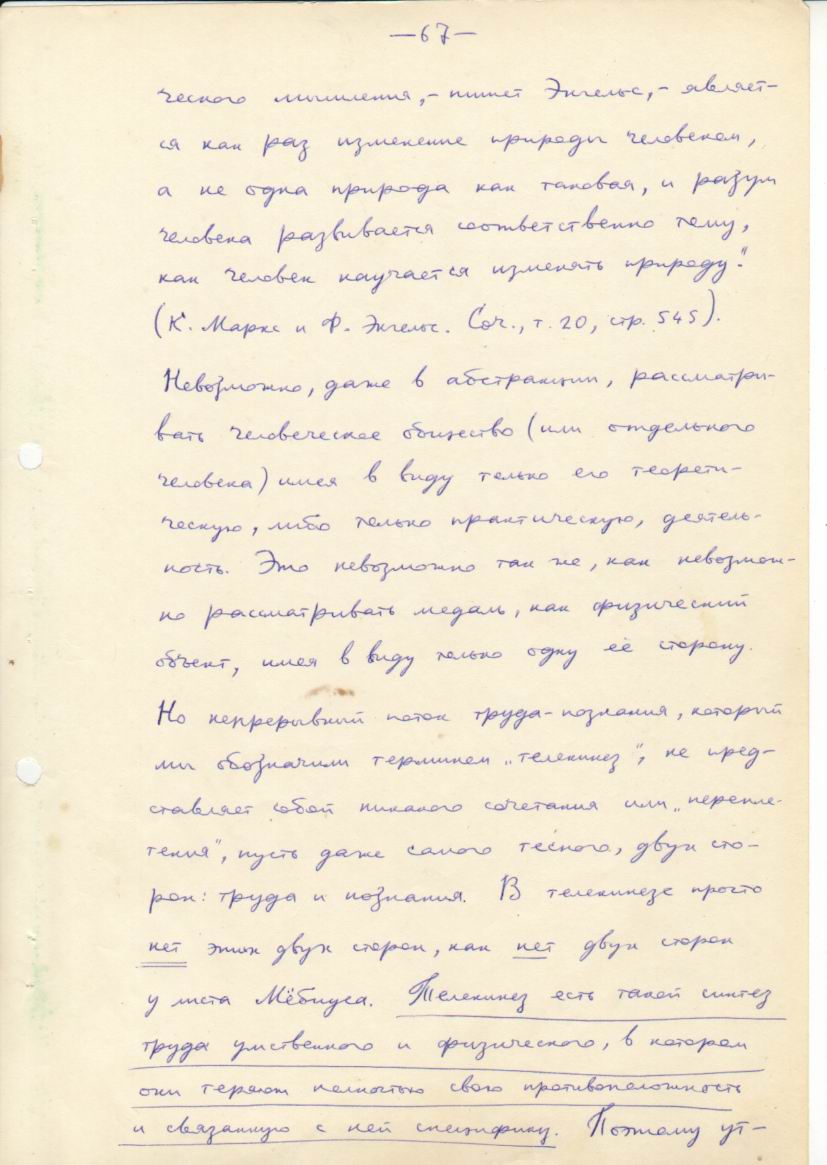 —67—
ческого мышления,- пишет Энгельс,- являет-
ся как раз изменение природы человеком,
а не одна природа как таковая, и разум
человека развивается соответственно тому,
как человек научается изменять природу."
(К. Маркс и Ф. Энгельс. Соч., т. 20, стр. 545).
Невозможно, даже в абстракции, рассматри-
вать человеческое общество (или отдельного
человека) имея в виду только его теорети-
ческую, либо только практическую, деятель-
ность. Это невозможно так же, как невозмож-
но рассматривать медаль, как физический
объект, имея в виду только одну её сторону.
Но непрерывный поток труда-познания, который
мы обозначили термином „телекинез", не пред-
ставляет собой никакого сочетания или „перепле-
тения", пусть даже самого тесного, двух сто-
рон: труда и познания. В телекинезе просто
нет этих двух сторон, как нет двух сторон
у листа Мёбиуса. Телекинез есть такой синтез
труда умственного и физического, в котором
они теряют полностью свою противоположность
и связанную с ней специфику. Поэтому ут-